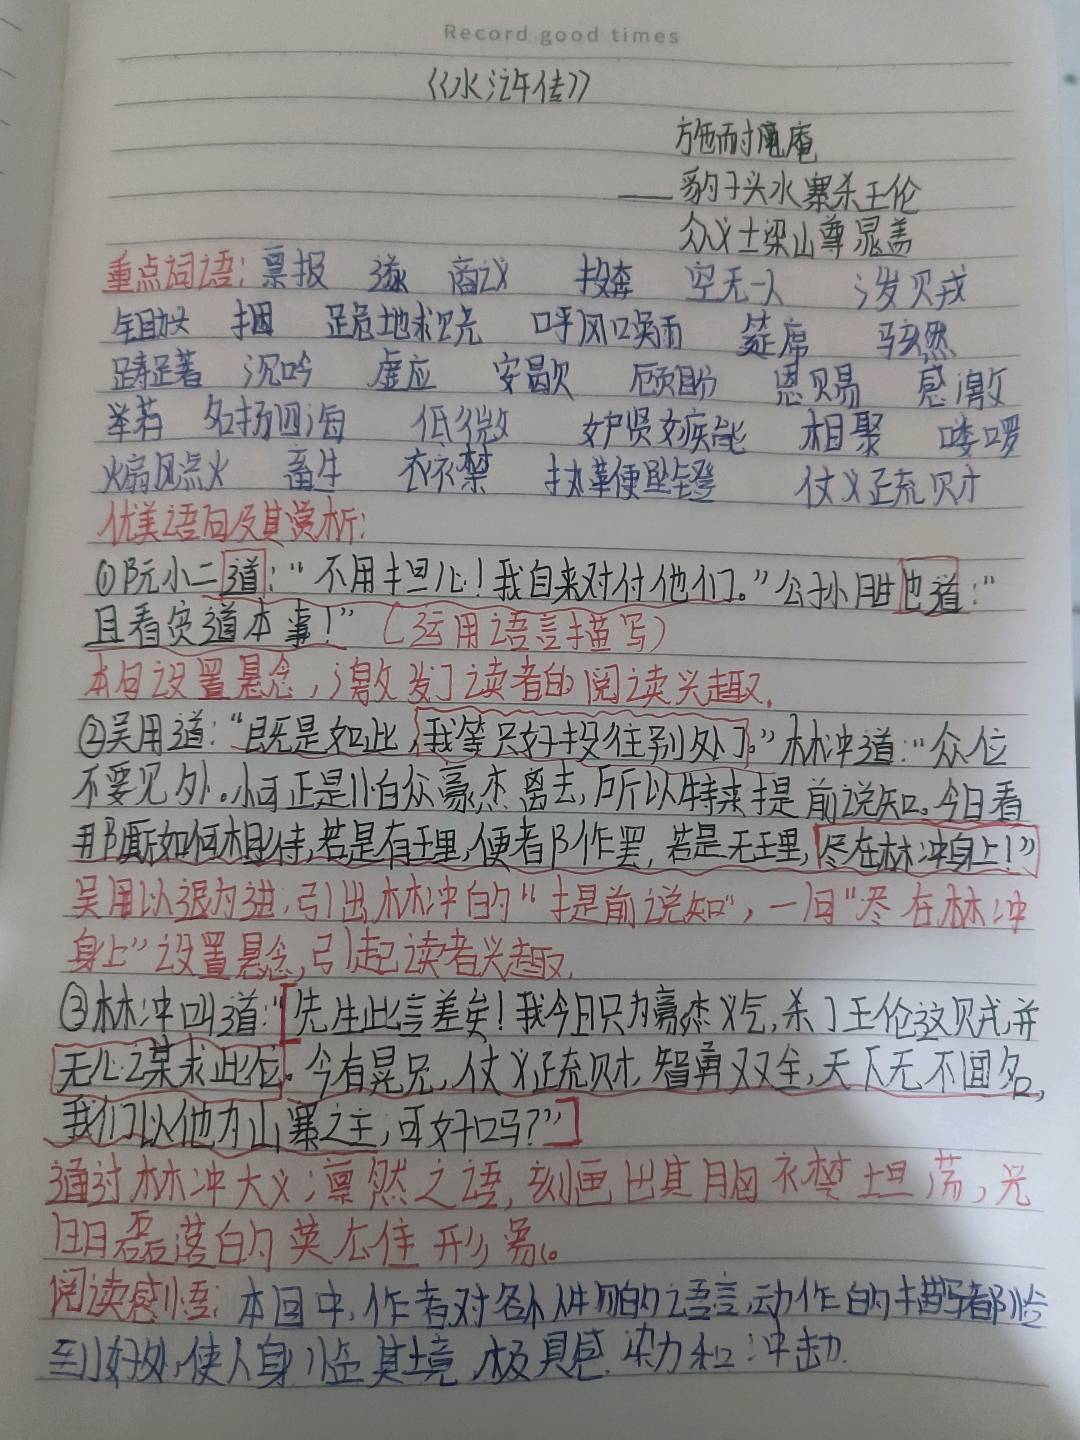 Record good times
《水浒传》
施耐庵
——豹子头水寨杀王伦
众义士梁山尊晁盖
重点词语：禀报 遂 商议 投奔 空无一人 泼贼
钼 捆 跪地求饶 呼风唤雨 筵席 骇然
踌躇 沉吟 虚应 安歇 顾盼 恩赐 感激
举荐 名扬四海 低微 妒贤嫉能 相聚 喽啰
煽风点火 畜生 衣襟 执鞭坠镫 仗义疏财
优美语句及其赏析：
①阮小二道：“不用担心！我自来对付他们。”公孙胜也道：“
且看贫道本事！”（运用语言描写）
本句设置悬念，激发了读者的阅读兴趣。
②吴用道：“既是如此，我等只好投往别处了。”林冲道：“众位
不要见外。小可正是怕众豪杰离去，所以特来提前说知。今日看
那厮如何相待，若是有理，便者那作罢，若是无理，尽在林冲身上！”
吴用以退为进，引出林冲的“提前说知”，一句“尽在林冲
身上”设置悬念，引起读者兴趣。
③林冲叫道：“先生此言差矣！我今日只为豪杰义气，杀了王伦这贼，并
无心谋求此位。今有晁兄，仗义疏财，智勇双全，天下无不闻名，
我们以他为山寨之主，可好吗？”
通过林冲大义凛然之语，刻画出其胸襟坦荡，光
明磊落的英雄形象。
阅读感悟：本回中，作者对各人物的语言，动作的描写都恰
到好处，使人身临其境，极具感染力和冲击力.